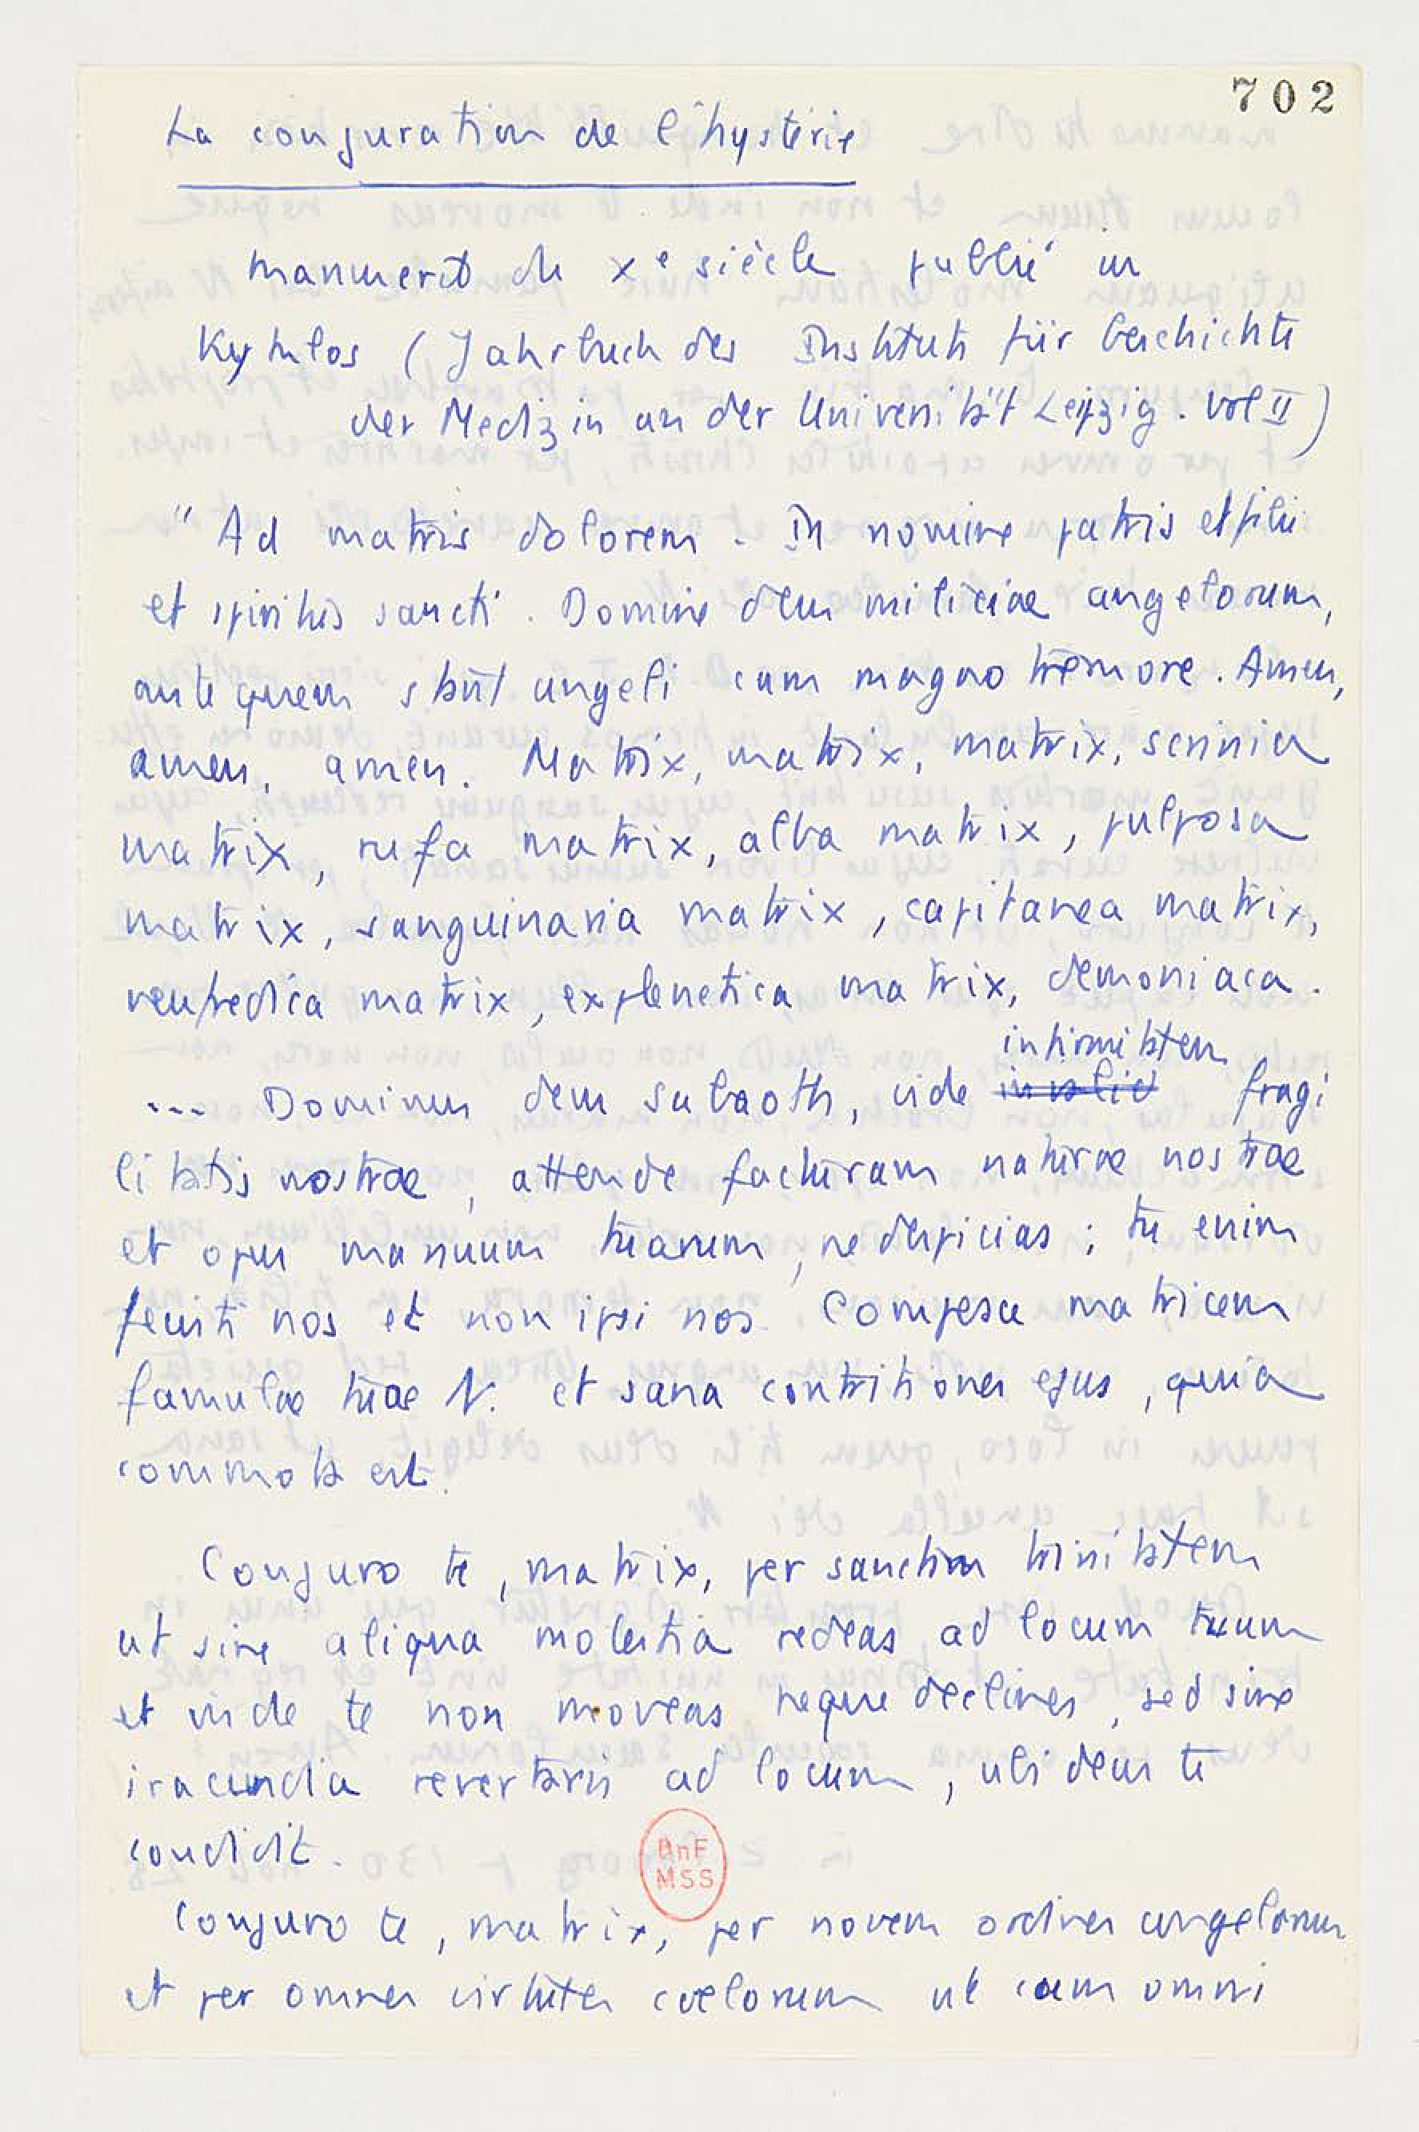 702
La conjuration de l'hystérie
manuscrit du Xe siècle publié in
Kyklos (Jahrbuch des Instituts für Geschichte
der Medizin an der Universität Leipzig. Vol II)
"Ad matris dolorem. In nomine patris et filii
et spiritus sancti. Domine deus miliciae angelorum,
ante quem stant angeli cum magno tremore. Amen,
amen, amen. Matrix, matrix, matrix, serinia
matrix, rufa matrix, alba matrix, pulposa
matrix, sanguinaria matrix, capitanea matrix,
neufredica matrix, explenetica matrix, demoniaca.
infirmitatem
... Dominus deus sabaoth, vide invalid fragi
litatis nostrae, attende facturam naturae nostrae
et opus manuum tuarum, ne despicias ; tu enim
fecisti nos et non ipsi nos. Compesce matricem
famulae tuae N. et sana contritiones ejus, quia
commota est.
Conjuro te, matrix, per sanctam trinitatem
ut sine aliqua molestia redeas ad locum tuum
et inde te non moveas neque declines, sed sine
iracundia revertaris ad locum, ubi deus te
condidit.
BnF
MSS
Conjuro te, matrix, per novem ordines angelorum
et per omnes virtutes coelorum ut cum omni